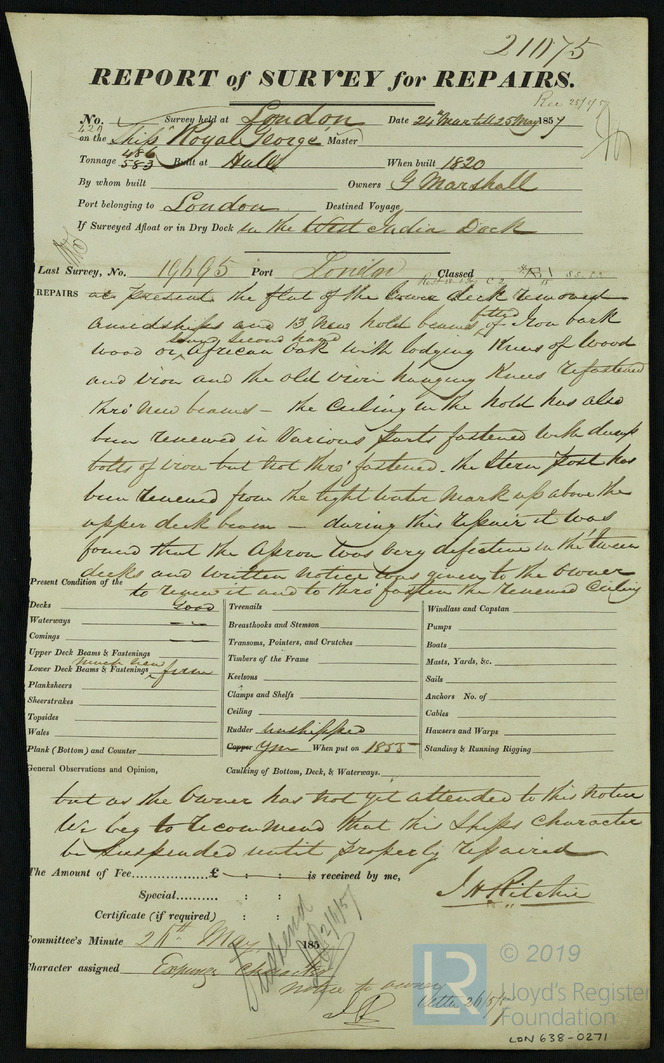 21175
REPORT of SURVEY for REPAIRS.
Rec 25/5/57
No. Survey held at London Date 24th Mar till 25 May 1857
429
on the Ship "Royal George" Master
Tonnage 486 583 Built at Hull When built 1820
By whom built Owners G Marshall
Port belonging to London Destined Voyage
If Surveyed Afloat or in Dry Dock in the West India Dock
Last Survey, No. 19695 Port London Classed
REPAIRS at present the flat of the lower deck removed
amidships and 13 New hold beams fitted of Iron bark
wood or some second hand African Oak with lodging Knees of Wood
and iron and the old iron hanging Knees refastened
thro' new beams – the Ceiling in the hold has also
been renewed in Various parts fastened with dump
bolts of iron but not thro' fastened. the Stern post has
been renewed from the light water Mark up above the
upper deck beam – during this repair it was
found that the Apron was very defective in the 'tween
decks and written notice was given to the Owner
to renew it and to thro' fasten the renewed Ceiling
Present Condition of the
Decks Good
Waterways
Comings
Upper Deck Beams & Fastenings
Lower Deck Beams & Fastenings much new firm
Planksheers
Sheerstrakes
Topsides
Wales
Plank (Bottom) and Counter
Treenails
Breasthooks and Stemson
Transoms, Pointers, and Crutches
Timbers of the Frame
Keelsons
Clamps and Shelfs
Ceiling
Rudder unshipped
Copper Ym When put on 1855
Windlass and Capstan
Pumps
Boats
Masts, Yards, &c.
Sails
Anchors No. of
Cables
Hawsers and Warps
Standing & Running Rigging
General Observations and Opinion, Caulking of Bottom, Deck, & Waterways.
but as the Owner has not yet attended to this notice
We beg to recommend that this Ships Character
be Suspended until properly repaired
The Amount of Fee £ : : is received by me,
Special : :
J H Ritchie
Certificate (if required) : :
Committee's Minute 26th May 185
Character assigned Expunge Character
Suspend
notice to owner
Letter 26/5/57
© 2019
LR
Lloyd's Register
Foundation
LON 638-0271